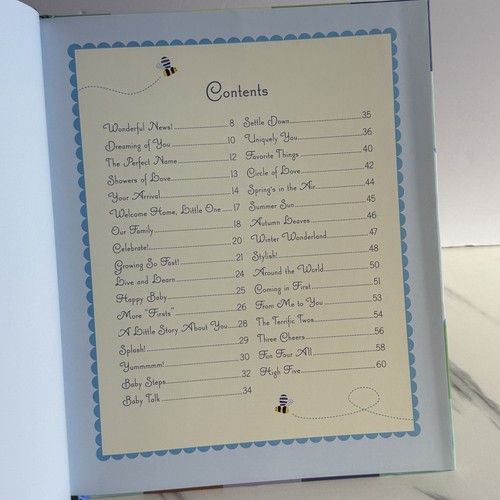 Contents
Wonderful News! 8
Dreaming of You 10
The Perfect Name 12
Showers of Love 13
Your Arrival 14
Welcome Home, Little One 17
Our Family 18
Celebrate! 20
Growing So Fast! 21
Live and Learn 24
Happy Baby 25
More "Firsts" 26
A Little Story About You 28
Splash! 29
Yummmmm! 30
Baby Steps 32
Baby Talk 34
Settle Down 35
Uniquely You 36
Favorite Things 40
Circle of Love 42
Spring's in the Air 44
Summer Sun 45
Autumn Leaves 46
Winter Wonderland 47
Stylish! 48
Around the World 50
Coming in First 51
From Me to You 53
The Terrific Twos 54
Three Cheers 56
Fun Four All 58
High Five 60